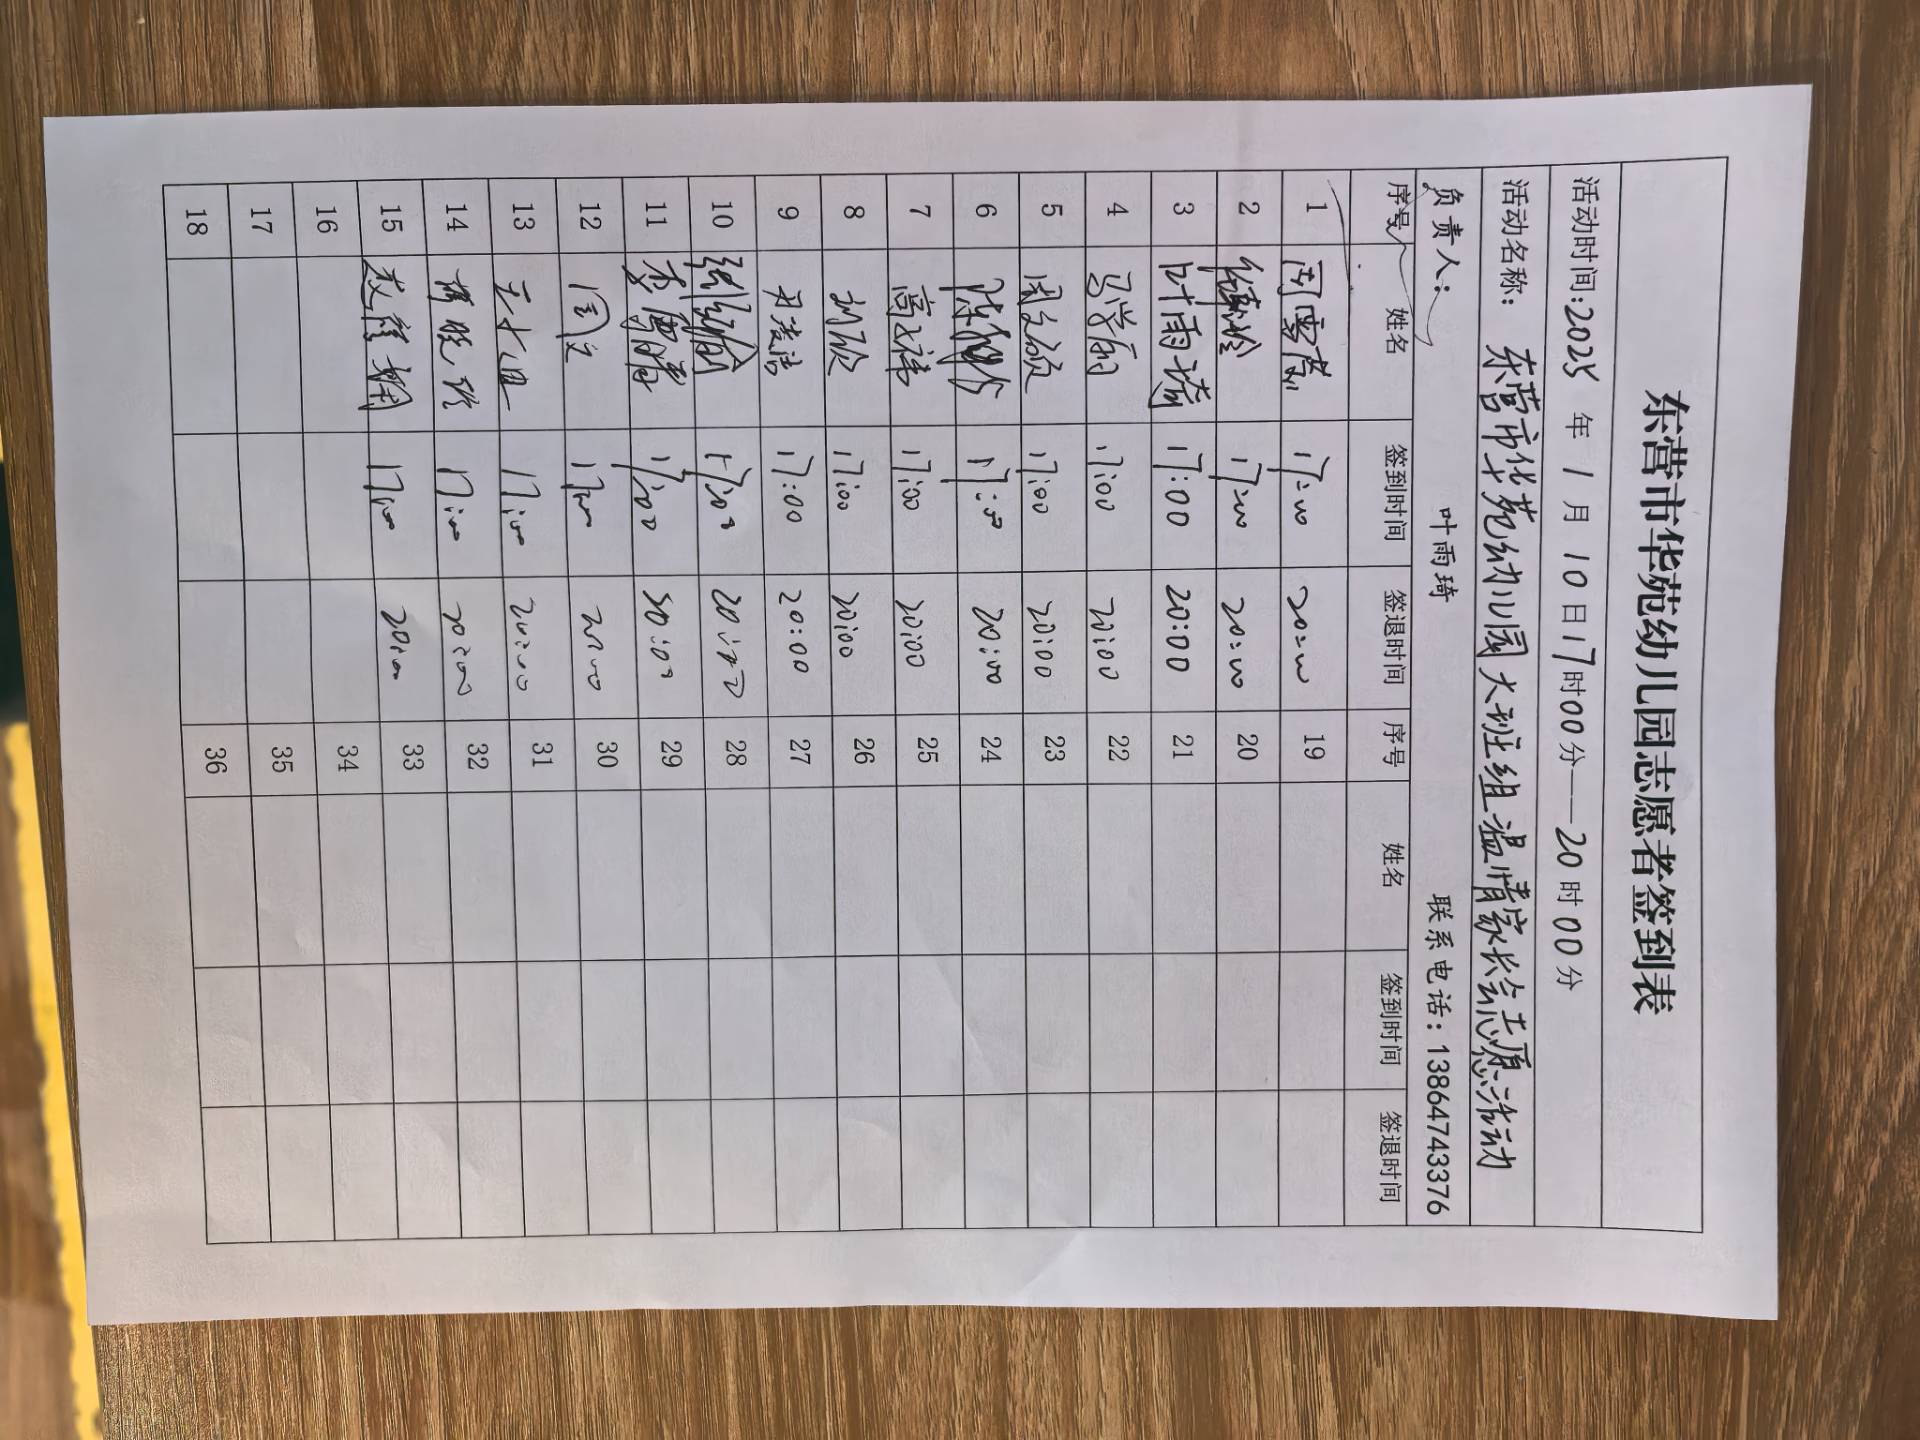 东营市华苑幼儿园志愿者签到表
活动时间:2025 年 1 月 10 日 17 时 00 分——20 时 00 分
活动名称: 东营市华苑幼儿园大班组温情家长会志愿活动
负责人: 叶雨琦 联系电话: 13864743376
序号 姓名 签到时间 签退时间 序号 姓名 签到时间 签退时间
1 17:00 20:00 19
2 17:00 20:00 20
3 叶雨琦 17:00 20:00 21
4 17:00 20:00 22
5 17:00 20:00 23
6 17:00 20:00 24
7 17:00 20:00 25
8 刘欣 17:00 20:00 26
9 尹洁洁 17:00 20:00 27
10 17:00 20:00 28
11 17:00 20:00 29
12 17:00 20:00 30
13 17:00 20:00 31
14 17:00 20:00 32
15 17:00 20:00 33
16 34
17 35
18 36